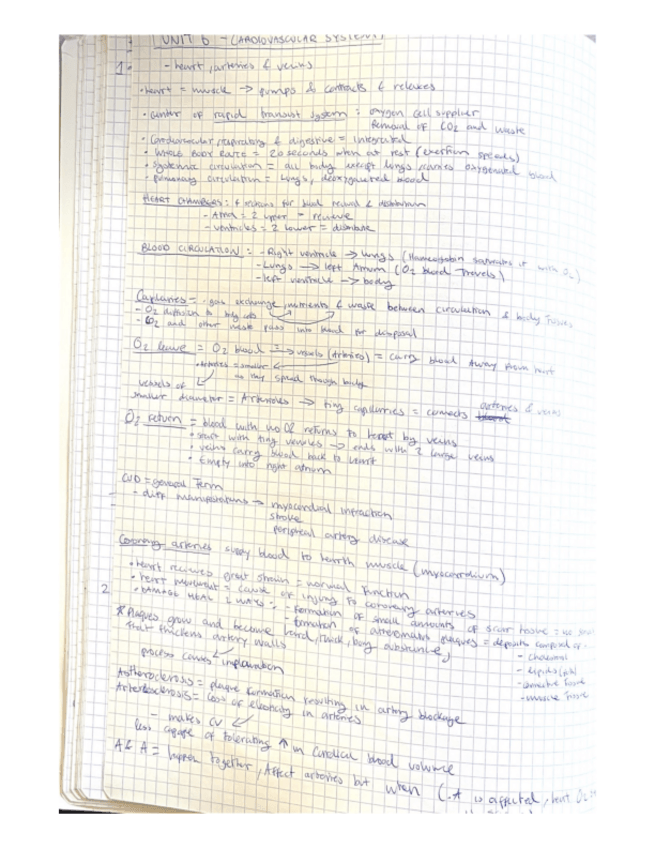 UNIT 6 - CARDIOVASCULAR SYSTEM
1. - heart, arteries & veins
• heart = muscle → pumps & contracts & relaxes
• center of rapid transist system : oxygen cell supplier
removal of CO2 and waste
• Cardiovascular, respiratory & digestive = integrated
• WHOLE BODY RATE = 20 seconds when at rest (exertion speeds)
• systemic circulation = all body except lungs, carries oxygenated blood
- pulmonary circulation = lungs, deoxygenated blood
HEART CHAMBERS : 4 for blood &
- Atria = 2 upper = receive
- ventricles = 2 lower =
BLOOD CIRCULATION : - Right ventricle → lungs (Haemoglobin saturates it with O2)
- Lungs → left Atrium (O2 blood travels)
- left ventricle → body
Capilaries = - gas exchange, nutrients & waste between circulation & body tissues
- O2 diffusion to
- CO2 and other waste pass into blood for disposal
O2 leave = O2 blood → vessels (Arteries) = carry blood away from heart
• arteries = smaller
as they spread through body
vessels of
smaller diameter = Arterioles → tiny capilarries = connects arteries & veins
O2 return = blood with no O2 returns to heart by veins
• start with tiny venules → ends with 2 large veins
• veins carry blood back to heart
• Empty into right atrium
CVD = general Term
- diff manifestations → myocardial infraction
stroke
peripheral artery disease
Coronary arteries supply blood to hearth muscle (myocardium)
• heart receives great strain = normal function
• heart movement = cause of injury to coronary arteries
2. • DAMAGE HEAL 2 WAYS : - Formation of small amounts of scar tissue =
- formation of plaques = deposits composed of
* Plaques grow and become hard, thick, substance,
- Cholesterol
that thickens artery walls
- Lipids
- connective tissue
- muscle tissue
process causes inflammation
= plaque formation resulting in artery blockage
= loss of elasticity in arteries
- makes CV
less capable of tolerating ↑ in blood volume
A & A = happen together, Affect arteries but when C.A is affected, heart O2